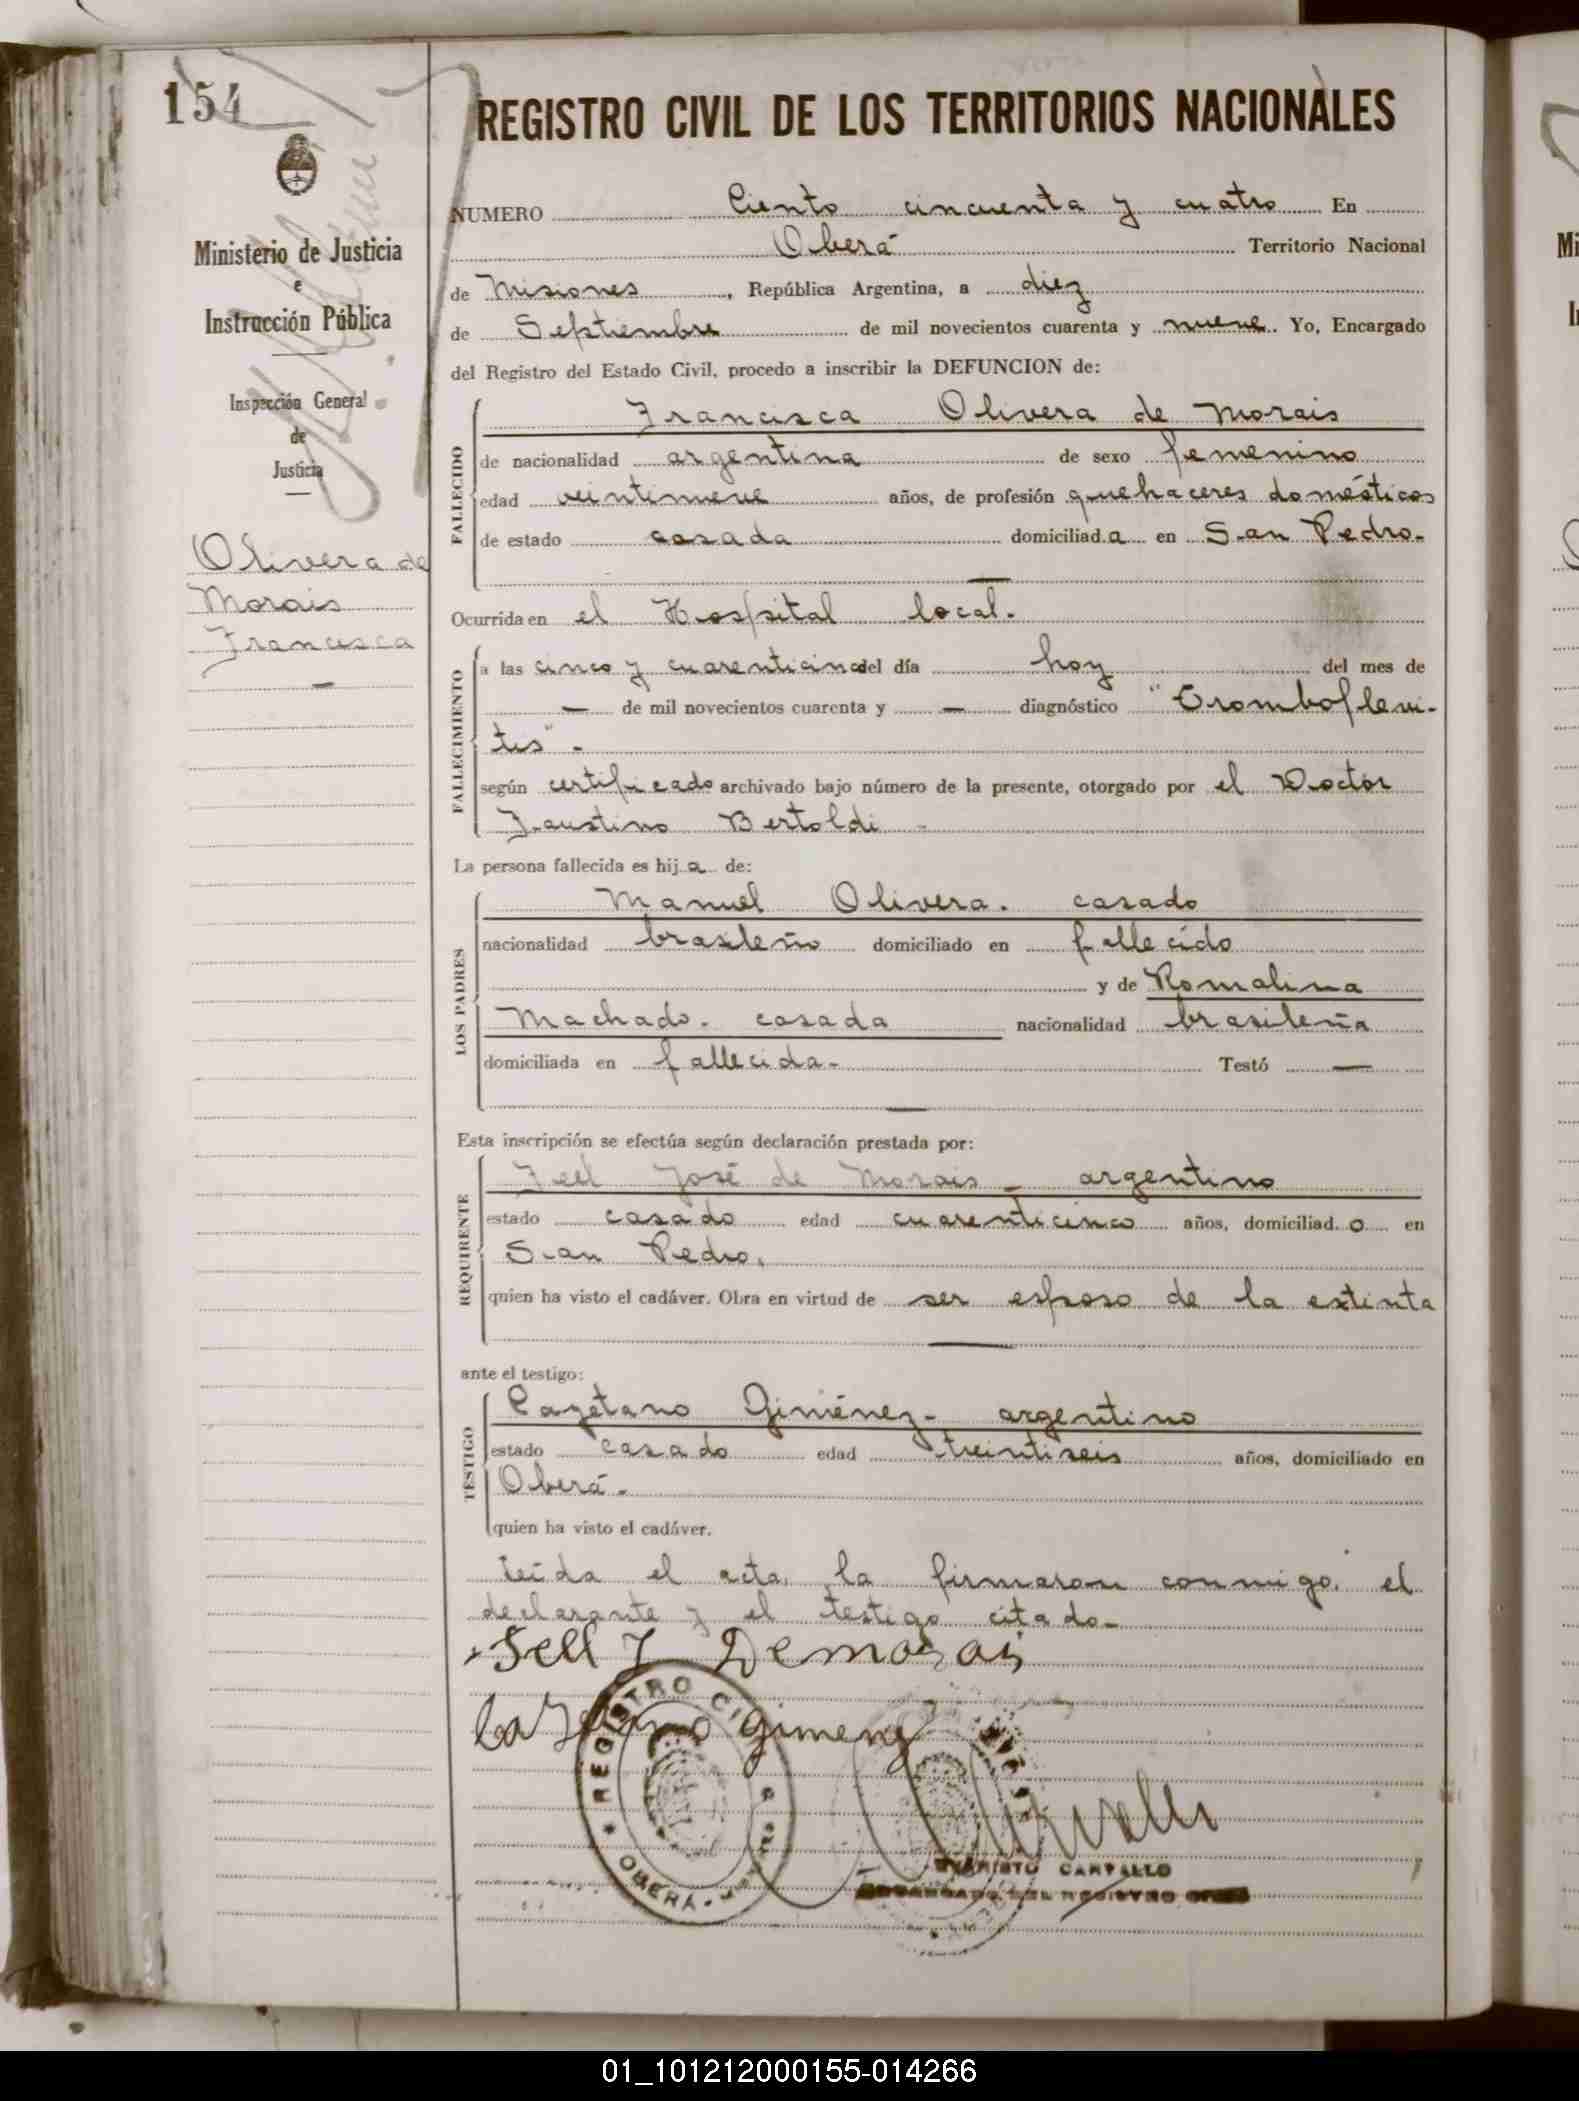 154
REGISTRO CIVIL DE LOS TERRITORIOS NACIONALES
Ministerio de Justicia
e
Instrucción Pública
Inspección General
de
Justicia
Olivera de
Morais
Francisca
NUMERO Ciento cincuenta y cuatro En
Oberá Territorio Nacional
de Misiones, República Argentina, a diez
de Septiembre de mil novecientos cuarenta y nueve. Yo, Encargado
del Registro del Estado Civil, procedo a inscribir la DEFUNCION de:
FALLECIDO
Francisca Olivera de Morais
de nacionalidad argentina de sexo femenino
edad veintinueve años, de profesión quehaceres domésticos
de estado casada domiciliada en San Pedro.
Ocurrida en el Hospital local.
FALLECIMIENTO
a las cinco y cuarenticinco del día hoy del mes de
— de mil novecientos cuarenta y — diagnóstico "Tromboflevi-
tis".
según certificado archivado bajo número de la presente, otorgado por el Doctor
Faustino Bertoldi -
La persona fallecida es hija de:
LOS PADRES
Manuel Olivera. casado
nacionalidad brasileño domiciliado en fallecido
y de Romalina
Machado. casada nacionalidad brasileña
domiciliada en fallecida. Testó —
Esta inscripción se efectúa según declaración prestada por:
REQUIRENTE
José de Morais - argentino
estado casado edad cuarenticinco años, domiciliado en
San Pedro.
quien ha visto el cadáver. Obra en virtud de ser esposo de la extinta
ante el testigo:
TESTIGO
Cayetano Giménez - argentino
estado casado edad treintiseis años, domiciliado en
Oberá.
quien ha visto el cadáver.
Leída el acta, la firmaron conmigo, el
declarante y el testigo citado.
Demorais
Cayetano Gimenez
REGISTRO CIVIL
OBERA
EVARISTO CARVALLO
ENCARGADO DEL REGISTRO CIVIL
01_101212000155-014266